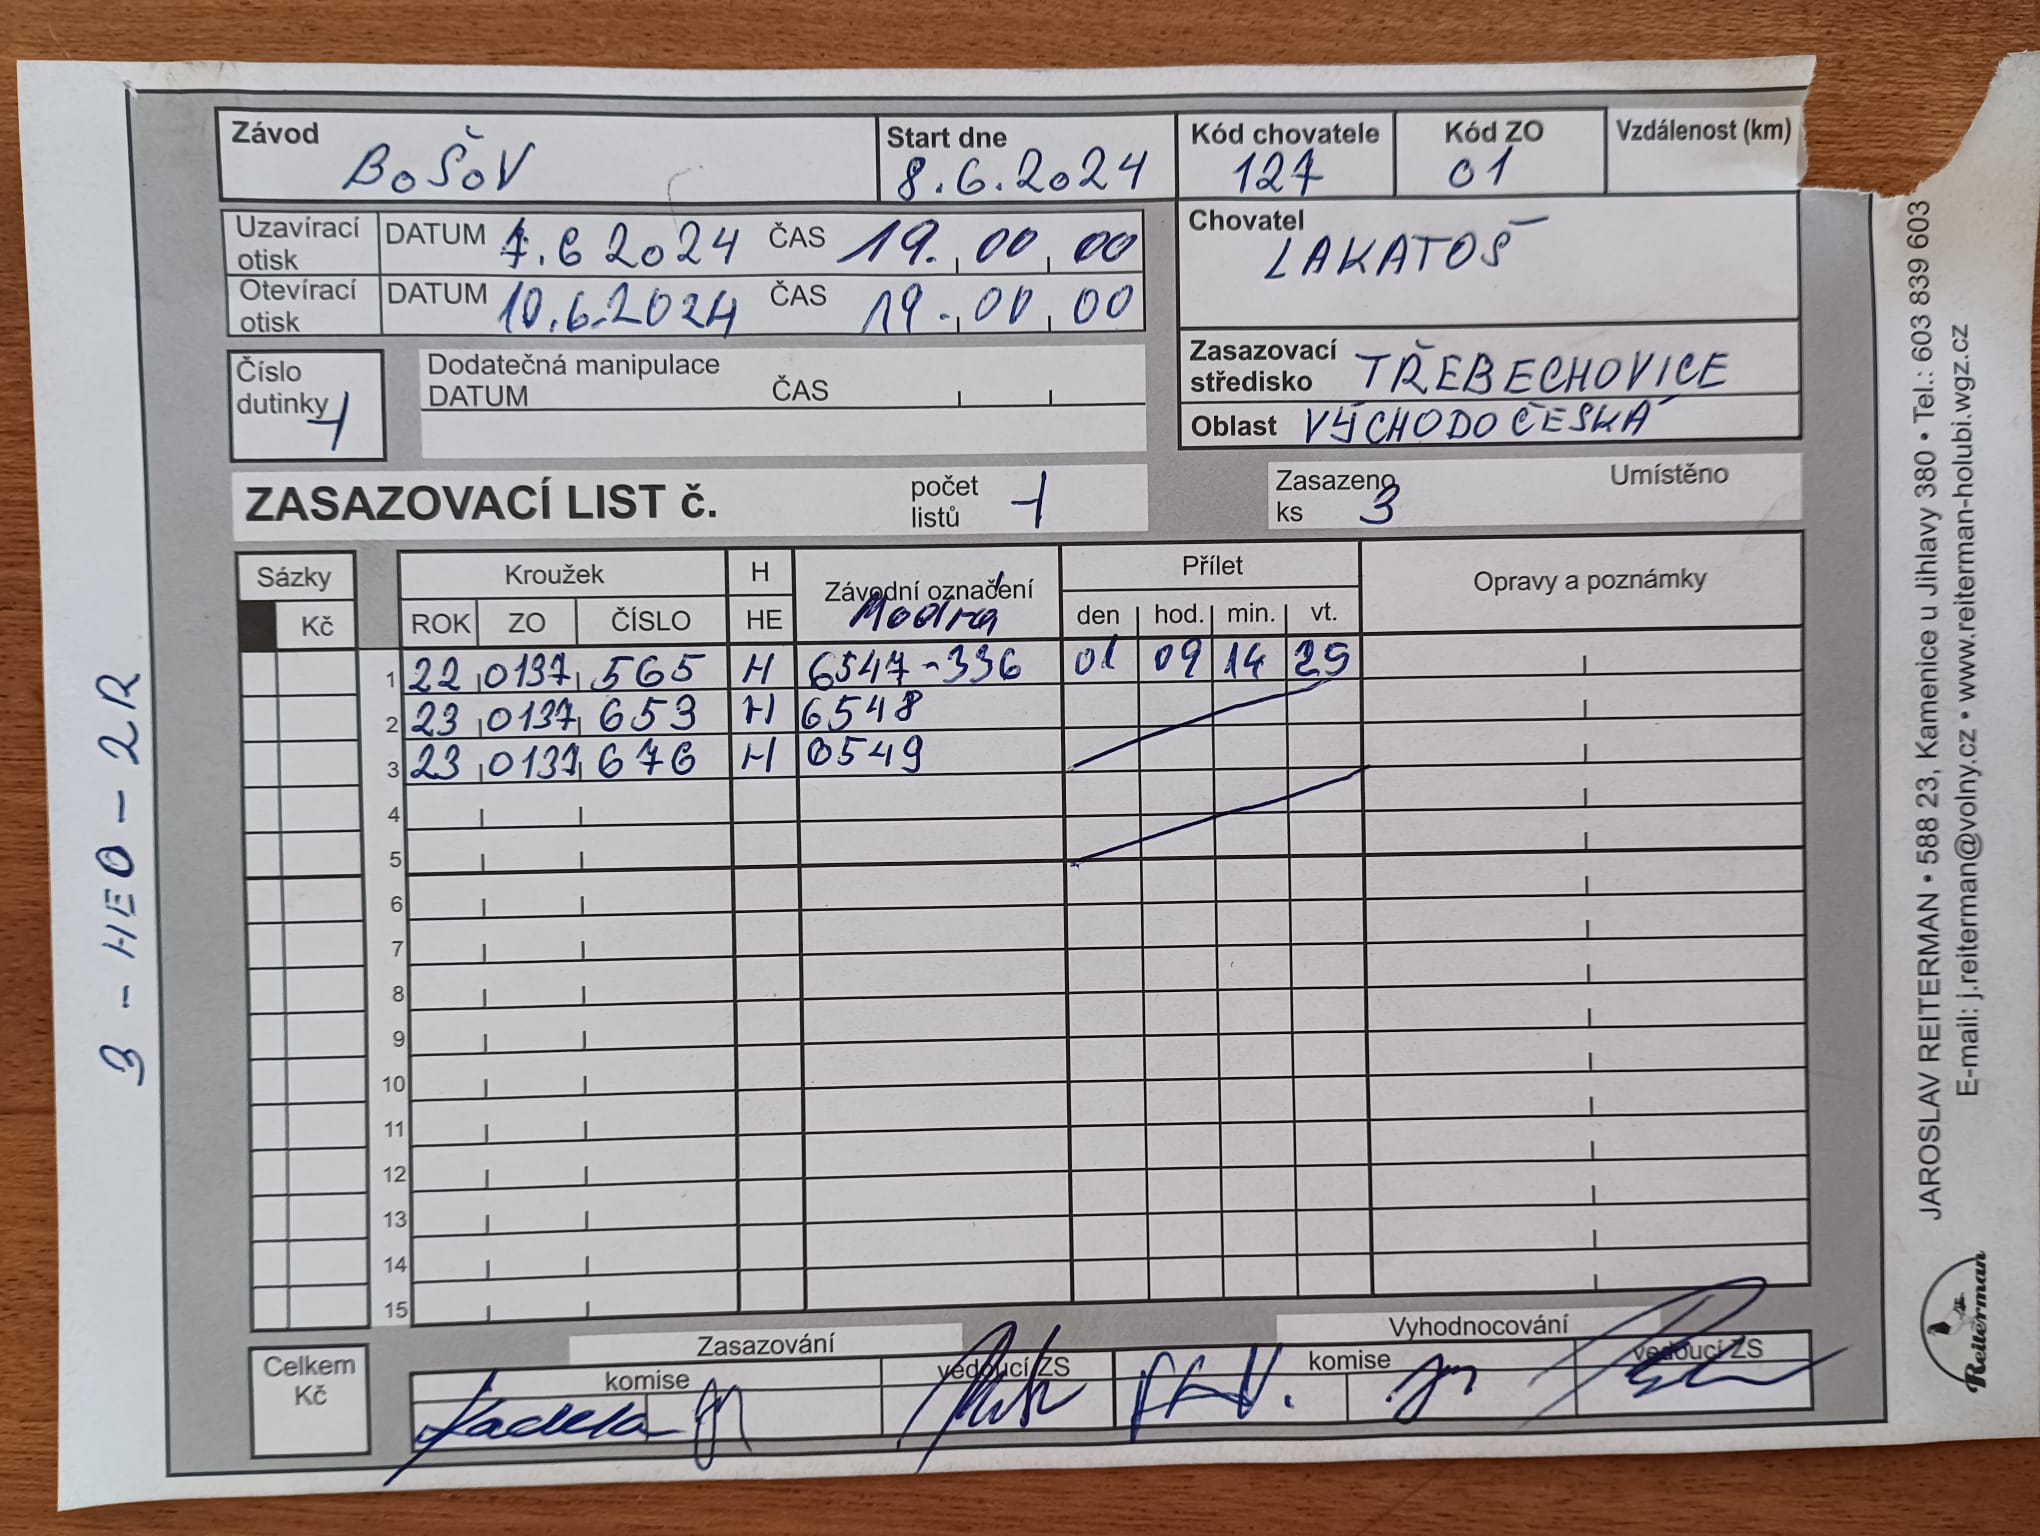 Závod BOŠOV
Start dne 8.6.2024
Kód chovatele 127
Kód ZO 01
Vzdálenost (km)
Uzavírací otisk DATUM 7.6 2024 ČAS 19. 00 00
Otevírací otisk DATUM 10.6.2024 ČAS 19. 00 00
Chovatel LAKATOŠ
Číslo dutinky 1
Dodatečná manipulace
DATUM ČAS
Zasazovací středisko TŘEBECHOVICE
Oblast VÝCHODOČESKÁ
ZASAZOVACÍ LIST č.
počet listů 1
Zasazeno ks 3
Umístěno
Sázky Kč
Kroužek H Závodní označení Přílet Opravy a poznámky
ROK ZO ČÍSLO HE Modrá den hod. min. vt.
1 22 0137 565 H 6547-336 01 09 14 25
2 23 0137 653 H 6548
3 23 0137 676 H 6549
4
5
6
7
8
9
10
11
12
13
14
15
Celkem Kč
Zasazování
komise vedoucí ZS
Vyhodnocování
komise vedoucí ZS
3 - HEO - 2R
JAROSLAV REITERMAN • 588 23, Kamenice u Jihlavy 380 • Tel.: 603 839 603
E-mail: j.reiterman@volny.cz • www.reiterman-holubi.wgz.cz
Reiterman